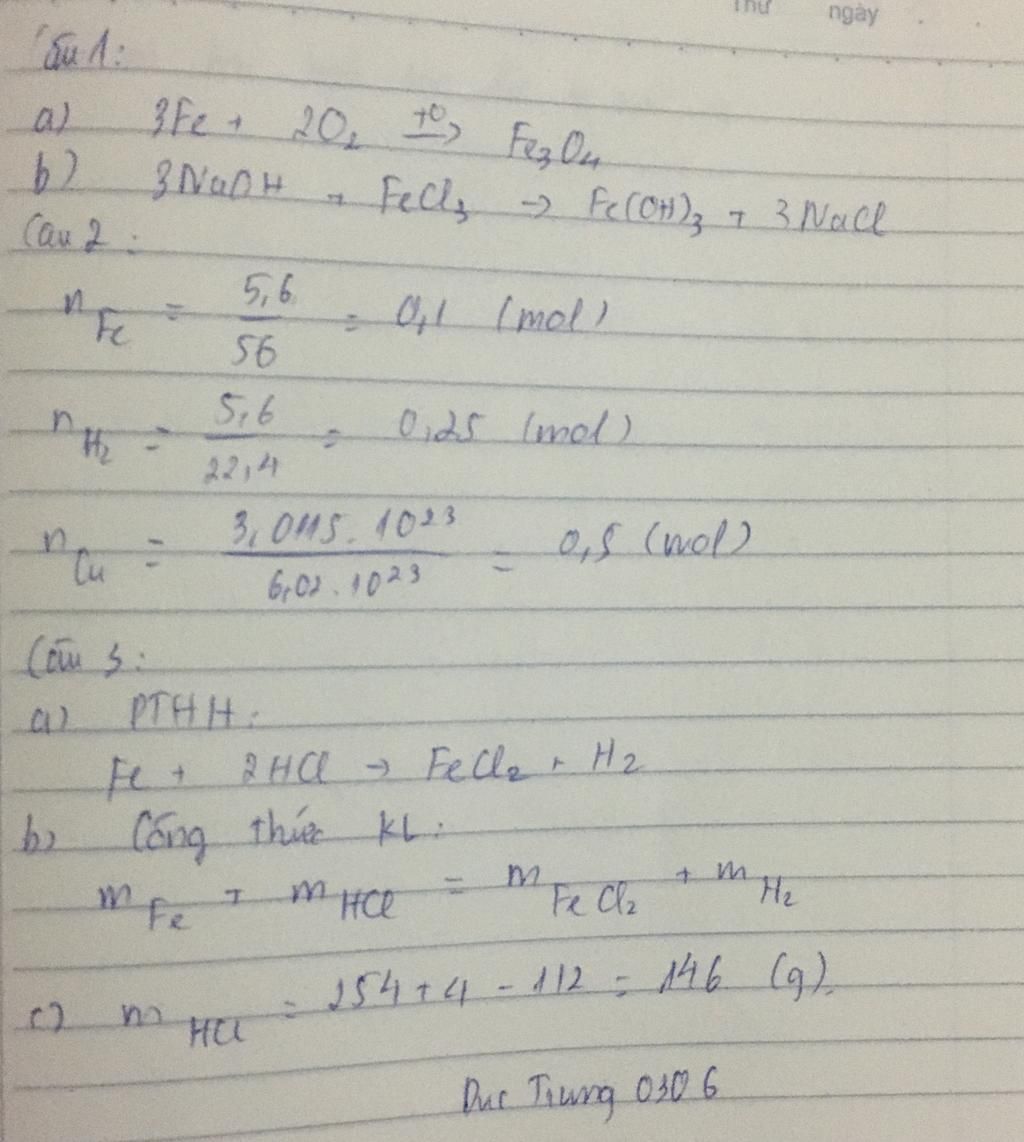 Thứ ngày
Câu 1:
a) 3Fe + 2O₂ t⁰→ Fe₃O₄
b) 3NaOH + FeCl₃ → Fe(OH)₃ + 3NaCl
Câu 2:
n Fe = 5,6 / 56 = 0,1 (mol)
n H₂ = 5,6 / 22,4 = 0,25 (mol)
n Cu = 3,0115 . 10²³ / 6,02 . 10²³ = 0,5 (mol)
Câu 3:
a) PTHH:
Fe + 2HCl → FeCl₂ + H₂
b) Công thức KL:
m Fe + m HCl = m FeCl₂ + m H₂
c) m HCl = 254 + 4 - 112 = 146 (g).
Duc Trung 0306